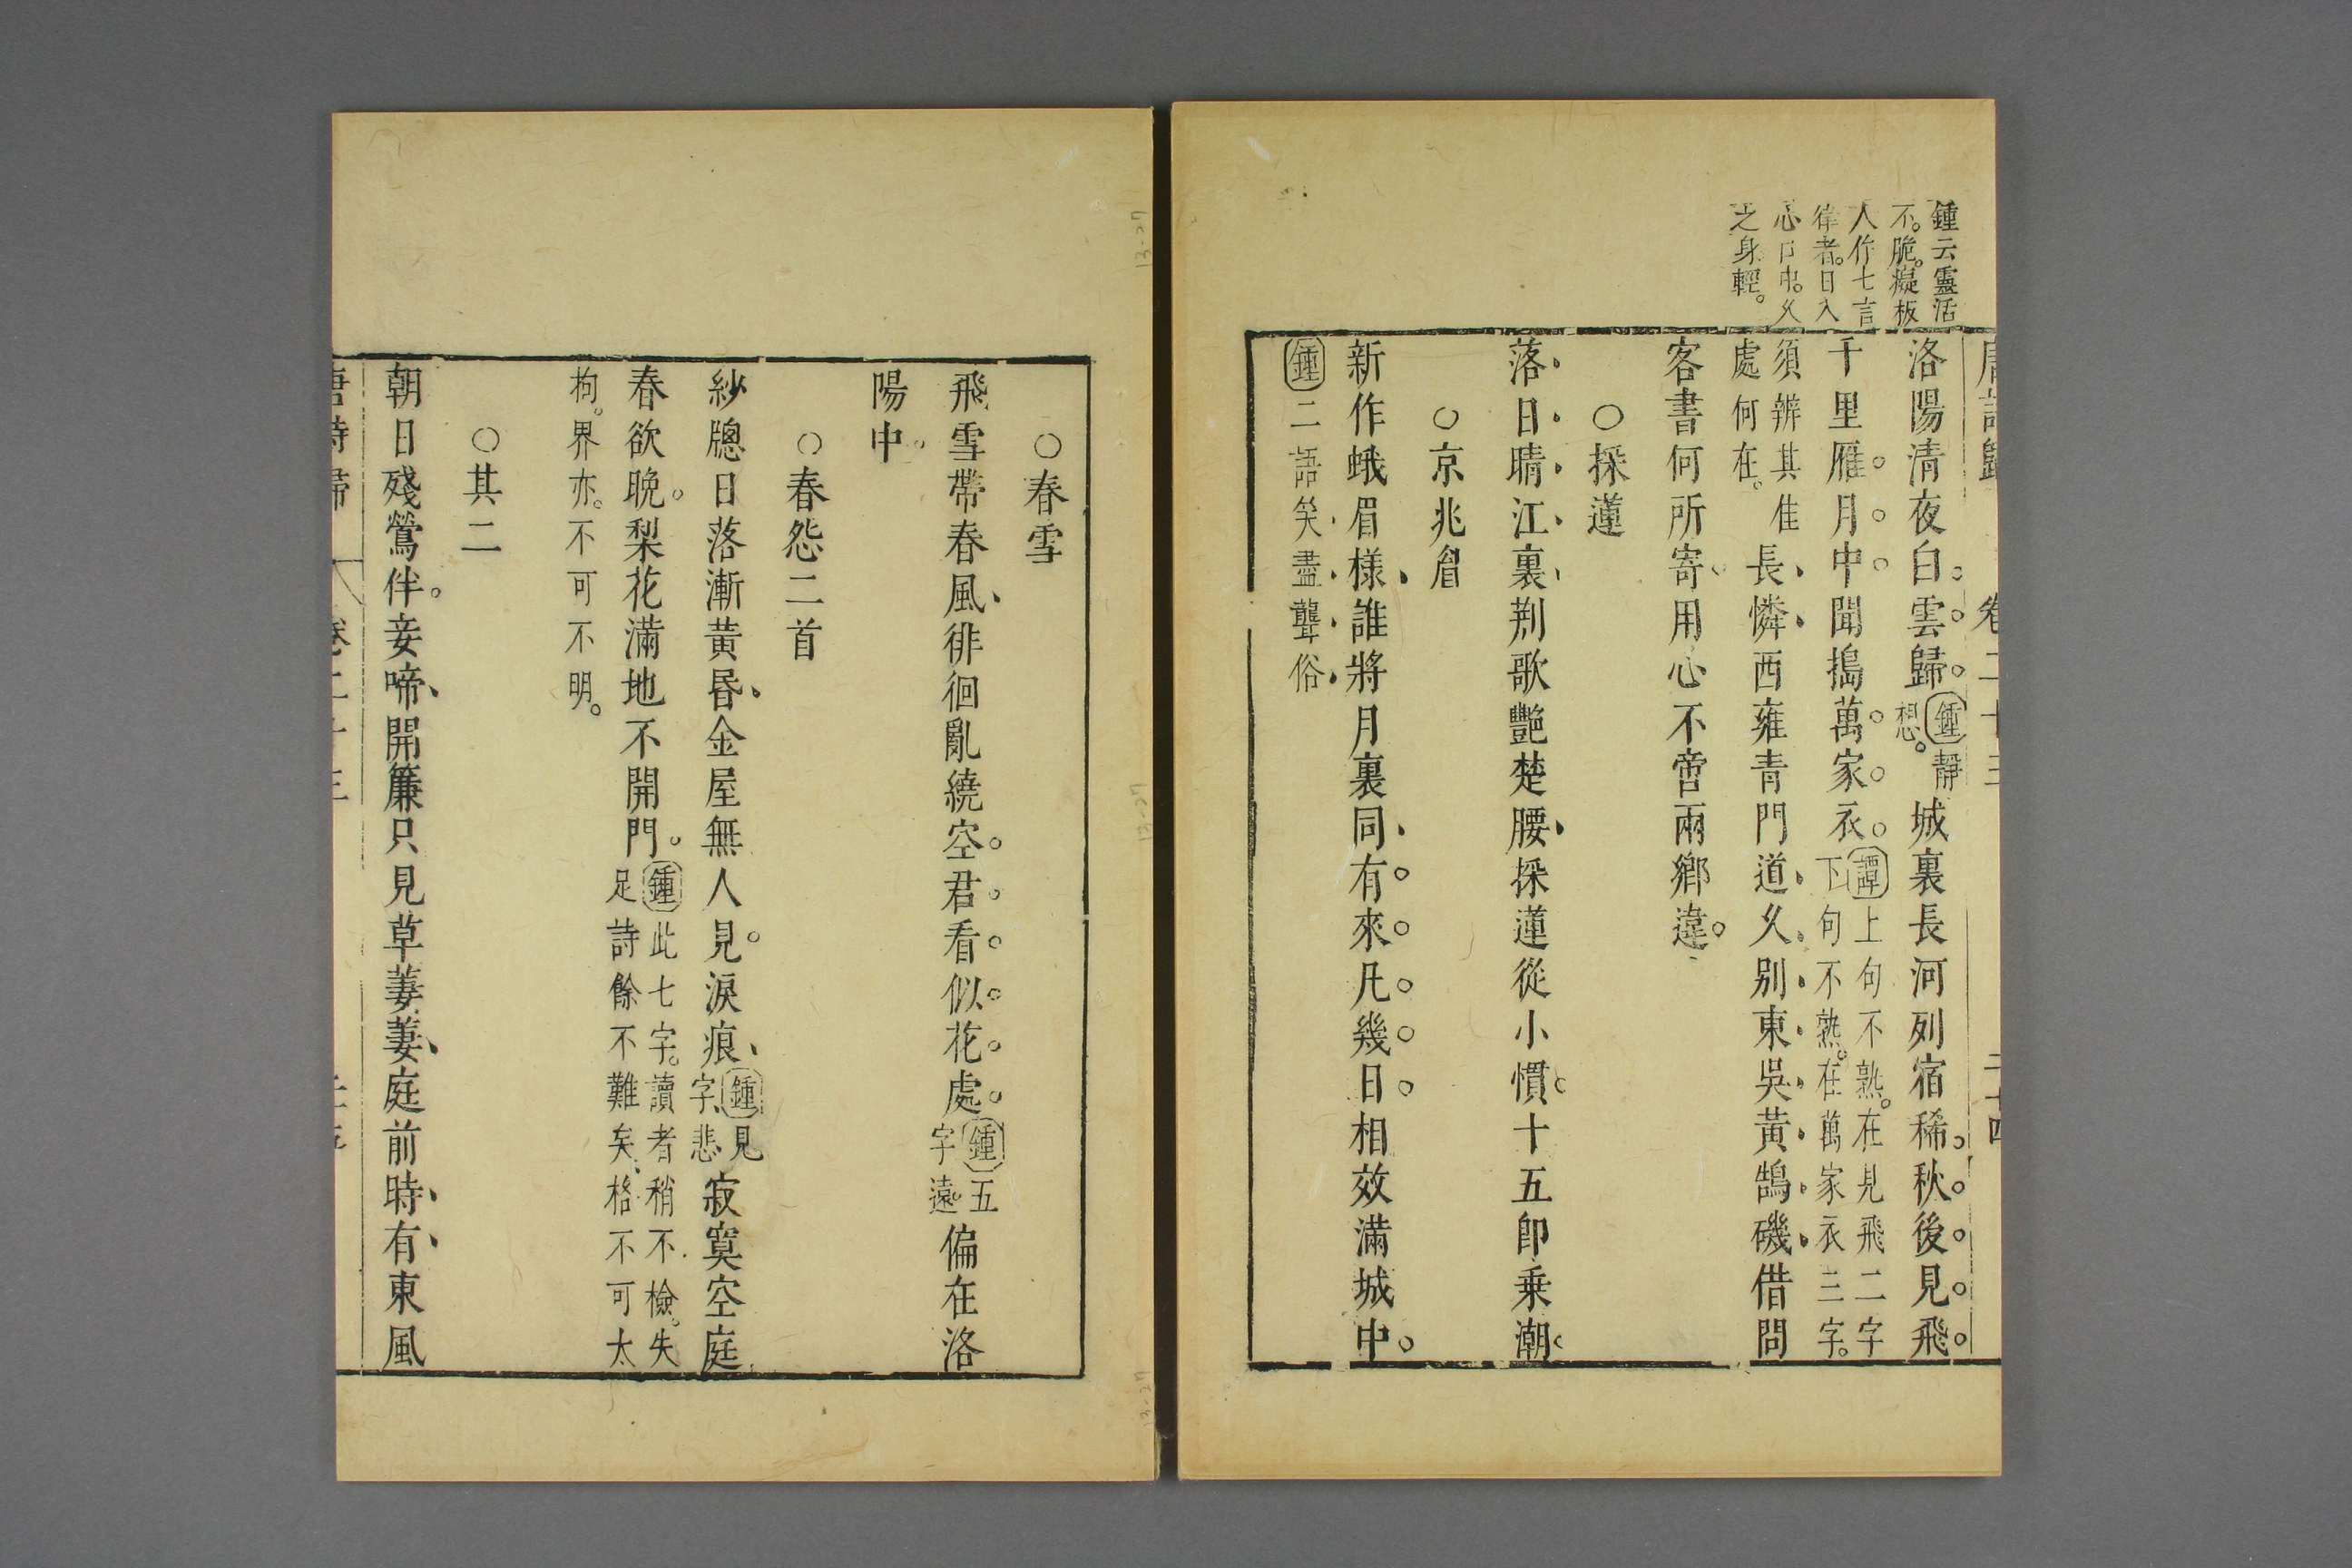 鍾云靈活
不脆癡板
人作七言
律者日入
心口中久
之身輕
唐詩歸 卷二十三 二十四
洛陽清夜白雲歸鍾靜想城裏長河列宿稀秋後見飛
千里雁月中聞搗萬家衣譚上句不熟在見飛二字下句不熟在萬家衣三字
須辨其佳處何在長憐西雍青門道久别東吳黃鵠磯借問
客書何所寄用心不啻兩鄉違
○採蓮
落日晴江裏荆歌艷楚腰採蓮從小慣十五卽乗潮
○京兆眉
新作蛾眉様誰將月裏同有來凡幾日相效滿城中
鍾二語笑盡聾俗
○春雪
飛雪帶春風徘徊亂繞空君看似花處鍾五字遠偏在洛
陽中
○春怨二首
紗牕日落漸黃昬金屋無人見淚痕鍾見字悲寂寞空庭
春欲晚梨花滿地不開門鍾此七字讀者稍不檢失足詩餘不難矣格不可太
拘界亦不可不明
○其二
朝日殘鶯伴妾啼開簾只見草萋萋庭前時有東風
唐詩歸 卷二十三